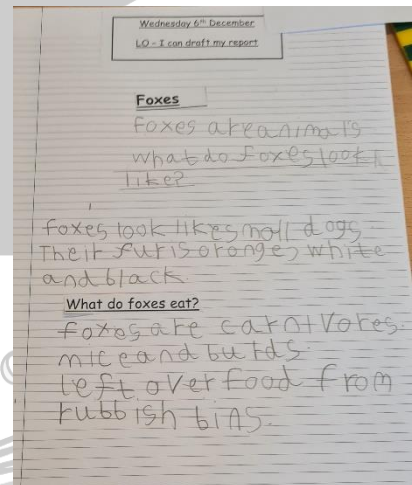 Wednesday 6th December
LO - I can draft my report
Foxes
foxes are animals
what do foxes look
like?
foxes look like small dogs
Their fur is orange, white
and black
What do foxes eat?
foxes are carnivores.
mice and burds
left over food from
rubbish bins.